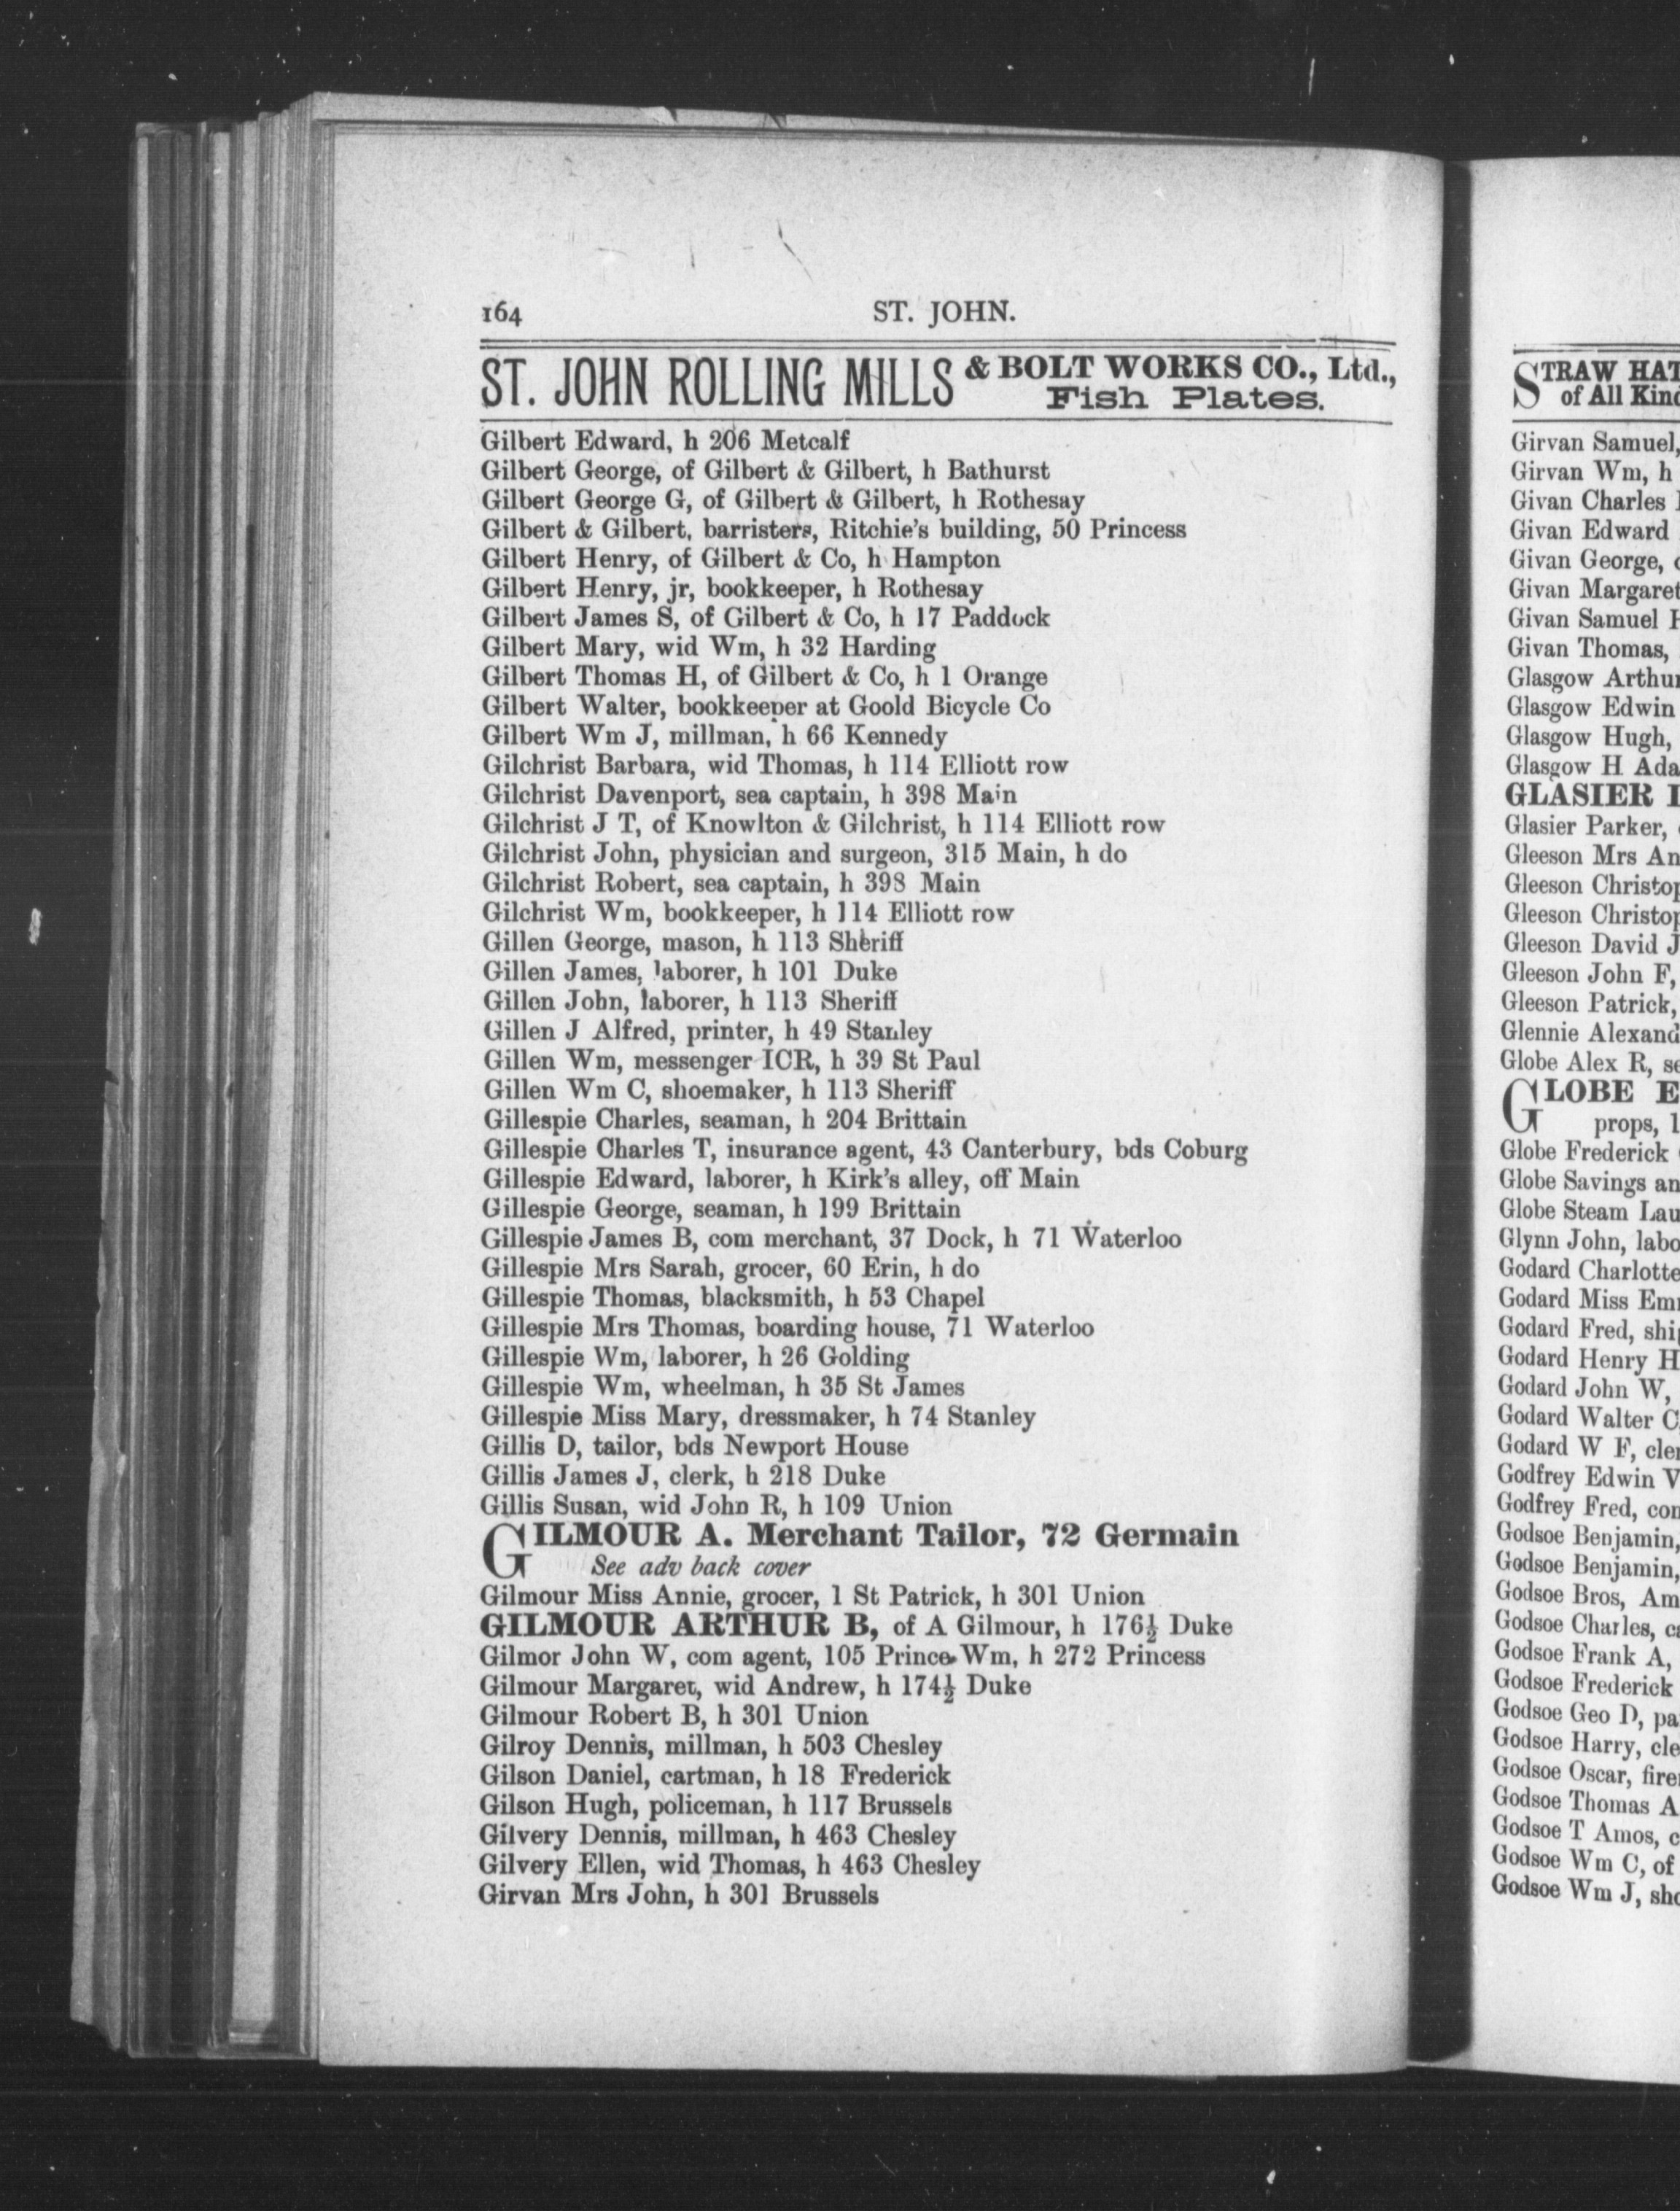 164 ST. JOHN.
ST. JOHN ROLLING MILLS & BOLT WORKS CO., Ltd.,
Fish Plates.
Gilbert Edward, h 206 Metcalf
Gilbert George, of Gilbert & Gilbert, h Bathurst
Gilbert George G, of Gilbert & Gilbert, h Rothesay
Gilbert & Gilbert, barristers, Ritchie's building, 50 Princess
Gilbert Henry, of Gilbert & Co, h Hampton
Gilbert Henry, jr, bookkeeper, h Rothesay
Gilbert James S, of Gilbert & Co, h 17 Paddock
Gilbert Mary, wid Wm, h 32 Harding
Gilbert Thomas H, of Gilbert & Co, h 1 Orange
Gilbert Walter, bookkeeper at Goold Bicycle Co
Gilbert Wm J, millman, h 66 Kennedy
Gilchrist Barbara, wid Thomas, h 114 Elliott row
Gilchrist Davenport, sea captain, h 398 Main
Gilchrist J T, of Knowlton & Gilchrist, h 114 Elliott row
Gilchrist John, physician and surgeon, 315 Main, h do
Gilchrist Robert, sea captain, h 398 Main
Gilchrist Wm, bookkeeper, h 114 Elliott row
Gillen George, mason, h 113 Sheriff
Gillen James, laborer, h 101 Duke
Gillen John, laborer, h 113 Sheriff
Gillen J Alfred, printer, h 49 Stanley
Gillen Wm, messenger ICR, h 39 St Paul
Gillen Wm C, shoemaker, h 113 Sheriff
Gillespie Charles, seaman, h 204 Brittain
Gillespie Charles T, insurance agent, 43 Canterbury, bds Coburg
Gillespie Edward, laborer, h Kirk's alley, off Main
Gillespie George, seaman, h 199 Brittain
Gillespie James B, com merchant, 37 Dock, h 71 Waterloo
Gillespie Mrs Sarah, grocer, 60 Erin, h do
Gillespie Thomas, blacksmith, h 53 Chapel
Gillespie Mrs Thomas, boarding house, 71 Waterloo
Gillespie Wm, laborer, h 26 Golding
Gillespie Wm, wheelman, h 35 St James
Gillespie Miss Mary, dressmaker, h 74 Stanley
Gillis D, tailor, bds Newport House
Gillis James J, clerk, h 218 Duke
Gillis Susan, wid John R, h 109 Union
GILMOUR A. Merchant Tailor, 72 Germain
See adv back cover
Gilmour Miss Annie, grocer, 1 St Patrick, h 301 Union
GILMOUR ARTHUR B, of A Gilmour, h 176½ Duke
Gilmor John W, com agent, 105 Prince Wm, h 272 Princess
Gilmour Margaret, wid Andrew, h 174½ Duke
Gilmour Robert B, h 301 Union
Gilroy Dennis, millman, h 503 Chesley
Gilson Daniel, cartman, h 18 Frederick
Gilson Hugh, policeman, h 117 Brussels
Gilvery Dennis, millman, h 463 Chesley
Gilvery Ellen, wid Thomas, h 463 Chesley
Girvan Mrs John, h 301 Brussels
STRAW HAT
of All
Girvan Samuel,
Girvan Wm, h
Givan Charles
Givan Edward
Givan George,
Givan Margaret
Givan Samuel
Givan Thomas,
Glasgow
Glasgow Edwin
Glasgow Hugh,
Glasgow H
GLASIER
Glasier Parker,
Gleeson Mrs
Gleeson
Gleeson
Gleeson David J
Gleeson John F,
Gleeson Patrick,
Glennie
Globe Alex R,
GLOBE
props,
Globe Frederick
Globe Savings
Globe Steam
Glynn John,
Godard Charlotte
Godard Miss
Godard Fred,
Godard Henry H
Godard John W,
Godard Walter C
Godard W F,
Godfrey Edwin
Godfrey Fred,
Godsoe Benjamin,
Godsoe Benjamin,
Godsoe Bros,
Godsoe Charles,
Godsoe Frank A,
Godsoe Frederick
Godsoe Geo D,
Godsoe Harry,
Godsoe Oscar,
Godsoe Thomas A
Godsoe T Amos,
Godsoe Wm C, of
Godsoe Wm J,